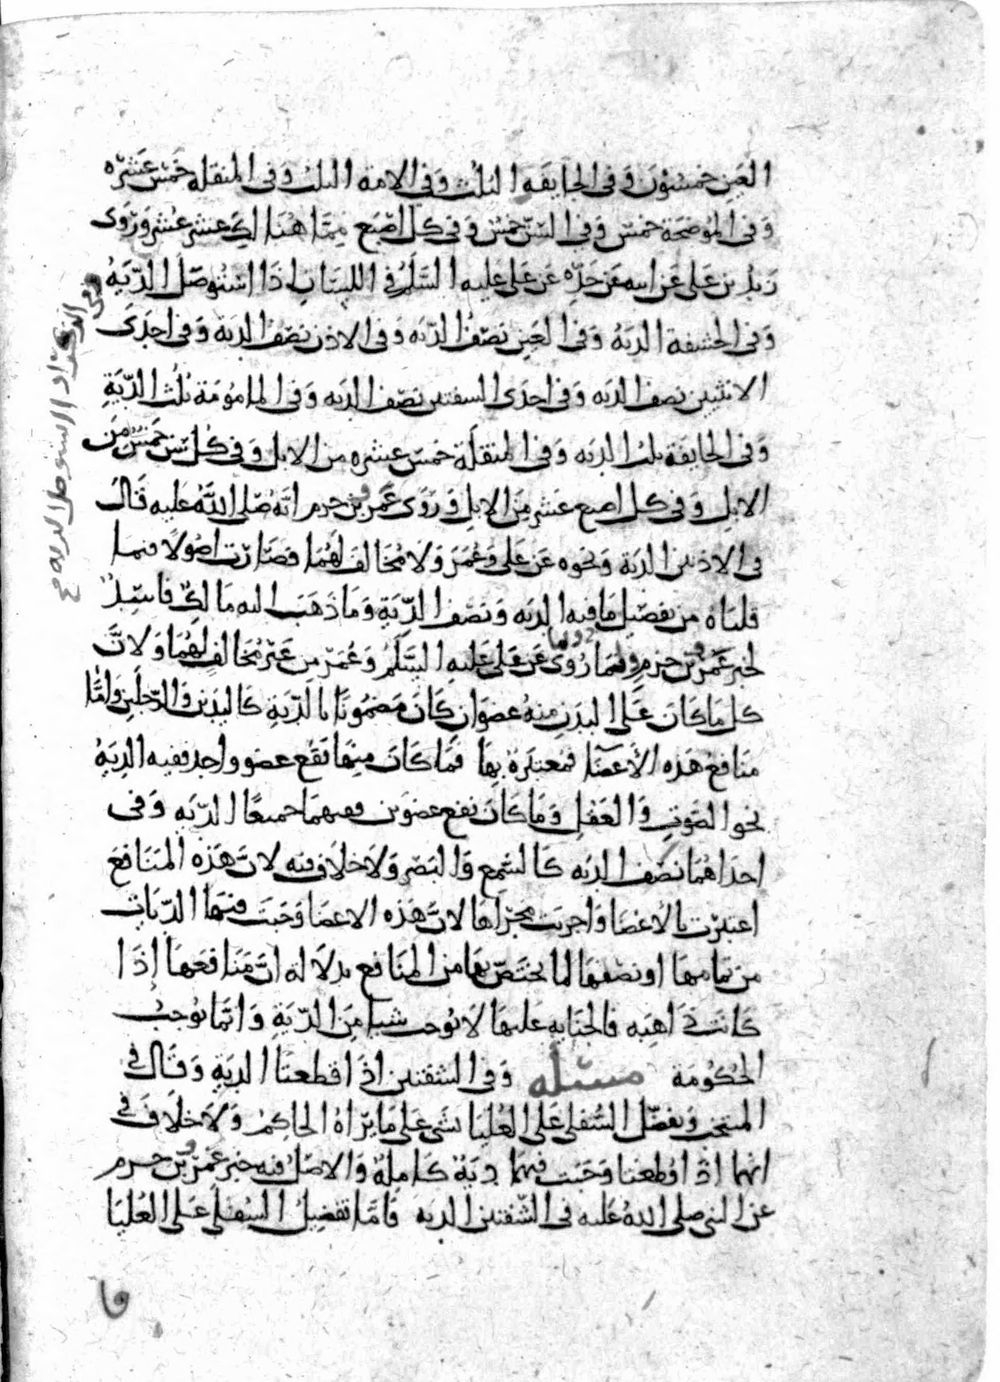 العين خمسون وفي الجايفه الثلث وفي الامة الثلث وفي المنقله خمس عشره
وفي الموضحة خمس وفي السن خمس وفي كل اصبع مما هنا لك عشر عشر وروى
زيد بن على عن ابيه عن جده عن على عليه السلم في اللسان اذا استوصل الديه
وفي الحشفة الديه وفي العين نصف الديه وفي الاذن نصف الديه وفي احدى
الانثيين نصف الديه وفي احدى الشفتين نصف الديه وفي المامومة ثلث الدية
وفي الجايفة ثلث الديه وفي المنقلة خمس عشره من الابل وفي كل سن خمس من
الابل وفي كل اصبع عشر من الابل وروى عمرو بن حزم انه صلى الله عليه قال
في الاذنين الدية ونحوه عن على وعمر ولا مخالف لهما فصارت اصولا فيما
قلناه من تفصيل ما فيه الديه ونصف الدية وما ذهب اليه مالك فاسد
لخبر عمرو بن حزم ولما روى عن على عليه السلم وعمر من غير مخالف لهما ولان
كل ما كان على البدن منه عضوان كان مضمونا بالدية كاليدين والرجلين واما
منافع هذه الاعضا فمعتبرة بها فما كان منها نفع عضو واحد ففيه الديه
نحو الصوت والعقل وما كان نفع عضوين ففيهما جميعا الديه وفي
احداهما نصف الديه كالسمع والبصر ولا خلاف فيه لان هذه المنافع
اعتبرت بالاعضا واجريت مجراها لان هذه الاعضا وجبت فيها الديات
من تمامها او نصفها لما يختص بها من المنافع بدلالة ان منافعها اذا
كانت ذاهبه فالجنايه عليها لا توجب شيا من الدية وانما توجب
الحكومة مسئله وفي الشفتين اذا قطعتا الدية وقال في
المنتخب وتفضل السفلى على العليا بشى على ما يراه الحاكم ولا خلاف في
انهما اذا قطعتا وجبت فيهما دية كاملة والاصل فيه خبر عمرو بن حزم
عن النبي صلى الله عليه في الشفتين الديه فاما تفضيل السفلى على العليا
وفي الذكر اذا استوصل الديه